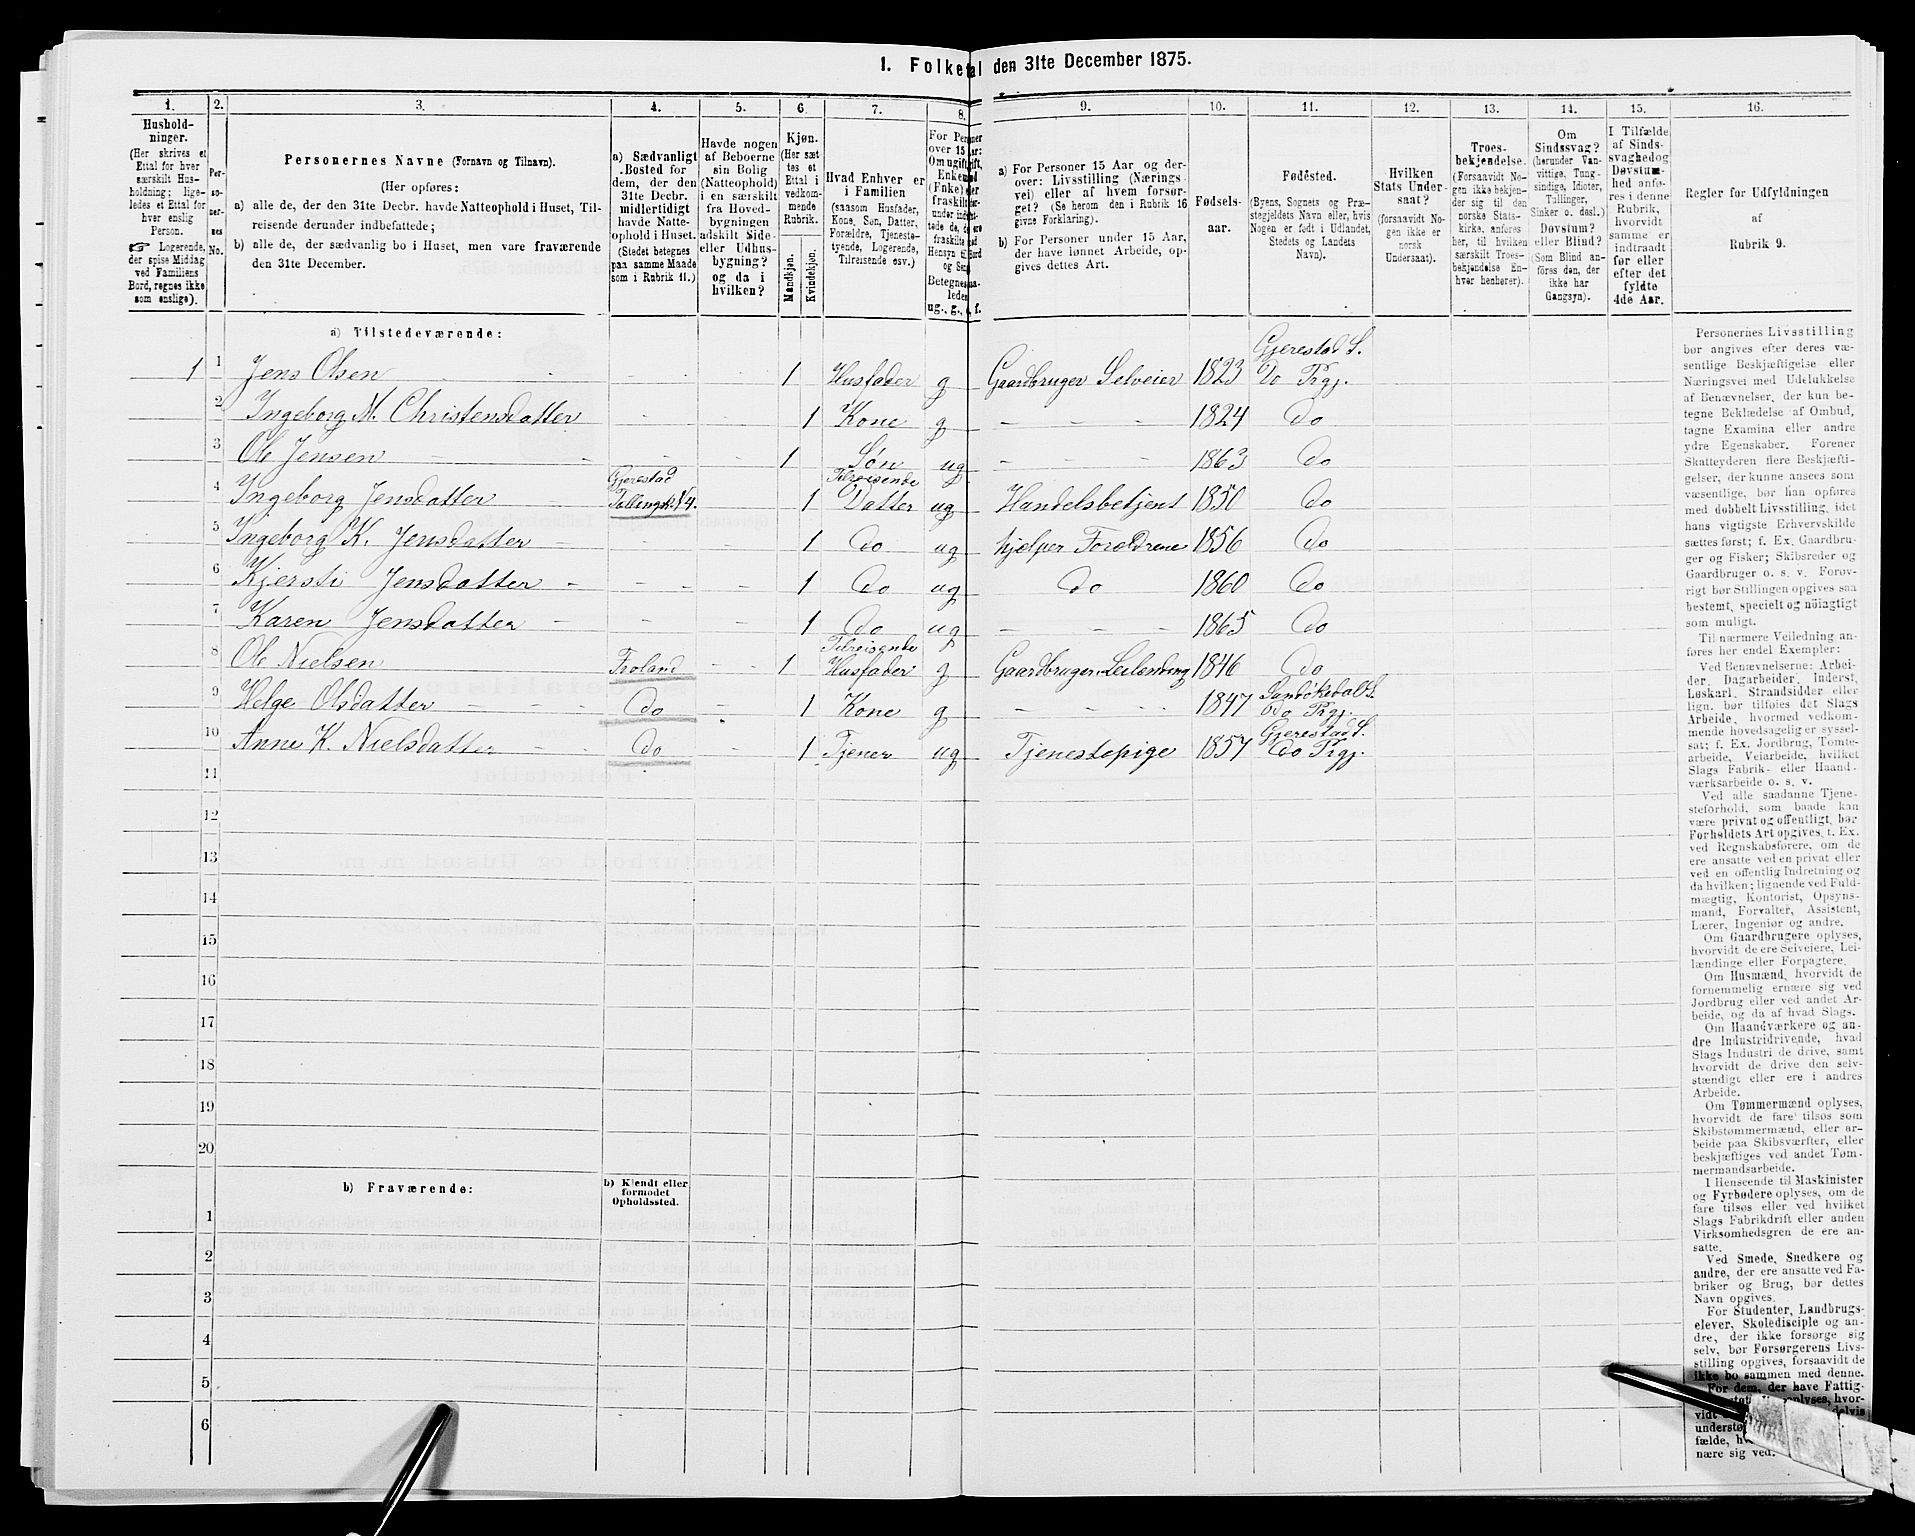 1. Folketal den 31te December 1875.
1. 2. 3. 4. 5. 6. 7. 8. 9. 10. 11. 12. 13. 14. 15. 16.
Hushold-
ninger.
(Her skrives et
Ettal for hver
særskilt Hus-
holdning; lige-
ledes et Ettal for
hver enslig
Person.
☞ Logerende,
der spise Middag
ved Familiens
Bord, regnes ikke
som enslige).
Per-
so-
ner-
nes
No.
Personernes Navne (Fornavn og Tilnavn).
(Her opføres:
a) alle de, der den 31te Decbr. havde Natteophold i Huset, Til-
reisende derunder indbefattede;
b) alle de, der sædvanlig bo i Huset, men vare fraværende
den 31te December.
a) Sædvanligt
Bosted for
dem, der den
31te Decbr.
midlertidigt
havde Natte-
ophold i Huset.
(Stedet betegnes
paa samme Maade
som i Rubrik 11.)
Havde nogen
af Beboerne
sin Bolig
(Natteophold)
i en særskilt
fra Hoved-
bygningen
adskilt Side-
eller Udhus-
bygning?
og da i
hvilken?
Kjøn.
(Her sæt
tes et
Ettal i
vedkom-
mende
Rubrik.
Mandkjøn.
Kvindekjøn.
Hvad Enhver er
i Familien
(saasom Husfader,
Kone, Søn, Datter,
Forældre, Tjeneste-
tyende, Logerende,
Tilreisende osv.)
For Personer
over 15 Aar:
Om ugift, gift,
Enkemand
(Enke) eller
fraskilt
a) For Personer 15 Aar og der-
over: Livsstilling (Nærings-
vei) eller af hvem forsør-
get? (Se herom den i Rubrik 16
givne Forklaring).
b) For Personer under 15 Aar,
der have lønnet Arbeide, op-
gives dettes Art.
Fødsels-
aar.
Fødested.
(Byens, Sognets og Præ-
stegjeldets Navn eller, hvis
Nogen er født i Udlandet,
Stedets og Landets
Navn).
Hvilken
Stats Under-
saat?
(forsaavidt No-
gen ikke er
norsk
Undersaat).
Troes-
bekjendelse.
(Forsaavidt No-
gen ikke bekjen-
der sig til den
norske Stats-
kirke, anføres
her, til hvilken
særskilt Troes-
bekjendelse En-
hver henhører).
Om
Sindssvag?
(herunder Van-
vittige, Tung-
sindige, Idioter,
Tullinger,
Sinker o. desl.)
Døvstum?
eller Blind?
(Som Blind an-
føres den, der
ikke har
Gangsyn).
I Tilfælde
af Sinds-
svaghed og
Døvstum-
hed anfø-
res i denne
Rubrik,
hvorvidt
samme er
indtraadt
før eller
efter det
fyldte
4de Aar.
Regler for Udfyldningen
af
Rubrik 9.
a) Tilstedeværende:
1 1 Jens Olsen 1 Husfader g Gaardbruger Selveier 1823 Gjerestad S. Do Prgj.
2 Ingeborg M. Christensdatter 1 Kone g 1824 do
3 Ole Jensen 1 Søn ug 1863 do
4 Ingeborg Jensdatter Gjerestad 1 Tilreisende Datter ug Handelsbetjent 1850 do
5 Ingeborg K. Jensdatter 1 do ug hjelper Forældrene 1856 do
6 Kjersti Jensdatter 1 do ug do 1860 do
7 Karen Jensdatter 1 do ug 1865 do
8 Ole Nielsen Froland 1 Tilreisende Husfader g Gaardbruger Leilending 1846 do
9 Helge Olsdatter do 1 Kone g 1847 Sandøkedal S. do Prgj.
10 Anne K. Nielsdatter do 1 Tjener ug Tjenestepige 1857 Gjerestad S. do Prgj.
11
12
13
14
15
16
17
18
19
20
b) Fraværende:
b) Kjendt eller
formodet
Opholdssted.
1
2
3
4
5
6
Personernes Livsstilling
bør angives efter deres væ-
sentlige Beskjæftigelse eller
Næringsvei med Udelukkelse
af Benævnelser, der kun be-
tegne Beklædelse af Ombud,
tagne Examina eller andre
ydre Egenskaber. Forener
Skatteyderen flere Beskjæfti-
gelser, der kunne ansees som
væsentlige, bør han opføres
med dobbelt Livsstilling, idet
hans vigtigste Erhvervskilde
sættes først; f. Ex. Gaardbru-
ger og Fisker; Skibsreder og
Gaardbruger o. s. v. Forøv-
rigt bør Stillingen opgives saa
bestemt, specielt og nöiagtigt
som muligt.
Til nærmere Veiledning an-
føres her endel Exempler:
Ved Benævnelserne: Arbei-
der, Dagarbeider, Inderst,
Løskarl, Strandsidder eller
lign. bør tilføies det Slags
Arbeide, hvormed vedkom-
mende hovedsagelig er syssel-
sat; f. Ex. Jordbrug, Tomte-
arbeide, Veiarbeide, hvilket
Slags Fabrik- eller Haand-
værksarbeide o. s. v.
Ved alle saadanne Tjene-
steforhold, som baade kan
være privat og offentligt, bør
Forholdets Art opgives, t. Ex.
ved Regnskabsførere, om de
ere ansatte ved en privat eller
ved en offentlig Indretning og
da hvilken; lignende ved Fuld-
mægtig, Kontorist, Opsyns-
mand, Forvalter, Assistent,
Lærer, Ingeniør og andre.
Om Gaardbrugere oplyses,
hvorvidt de ere Selveiere, Lei-
lændinge eller Forpagtere.
Om Husmænd, hvorvidt de
fornemmelig ernære sig ved
Jordbrug eller ved andet Ar-
beide, og da af hvad Slags.
Om Haandværkere og an-
dre Industridrivende, hvad
Slags Industri de drive, samt
hvorvidt de drive den selv-
stændigt eller ere i andres
Arbeide.
Om Tømmermænd oplyses,
hvorvidt de fare tilsøs som
Skibstømmermænd, eller ar-
beide paa Skibsværfter, eller
beskjæftiges ved andet Tøm-
mermandsarbeide.
I Henseende til Maskinister
og Fyrbødere oplyses, om de
fare tilsøs eller ved hvilket
Slags Fabrikdrift eller anden
Virksomhedsgren de ere an-
satte.
Ved Smede, Snedkere og
andre, der ere ansatte ved Fa-
briker og Brug, bør dettes
Navn opgives.
For Studenter, Landbrugs-
elever, Skoledisciple og an-
dre, der ikke forsørge sig
selv, bør Forsørgerens Livs-
stilling opgives, forsaavidt de
ikke bo sammen med denne.
For dem, der have Fattig-